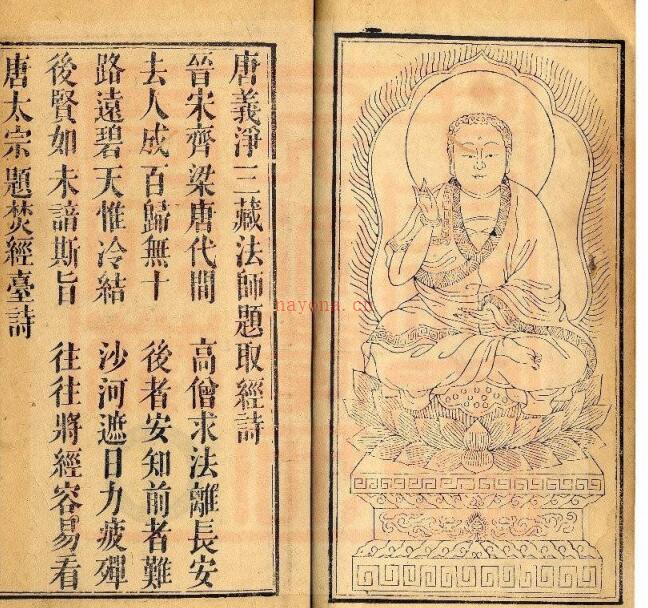 唐義淨三藏法師題取經詩
晉宋齊梁唐代間 高僧求法離長安
去人成百歸無十 後者安知前者難
路遠碧天惟冷結 沙河遮日力疲殫
後賢如未諳斯旨 往往將經容易看
唐太宗題焚經臺詩
nayona.cn